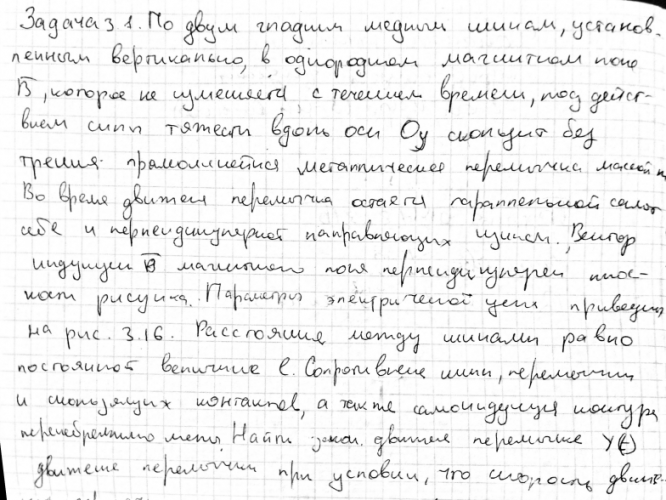 Задача 3 1. По двум гладким медным шинам, установ-
ленным вертикально, в однородном магнитном поле
B, которое не изменяется с течением времени, под дейст-
вием силы тяжести вдоль оси Oy скользит без
трения прямолинейная металлическая перемычка массой m
Во время движения перемычка остается параллельной самой
себе и перпендикулярной направляющих шинам. Вектор
индукции B магнитного поля перпендикулярен плос-
кости рисунка. Параметры электрической цепи приведены
на рис. 3.16. Расстояние между шинами равно
постоянной величине l. Сопротивление шин, перемычки
и скользящих контактов, а также самоиндукция контура
пренебрежимо малы. Найти закон движения перемычки y(t)
движение перемычки при условии, что скорость движе-